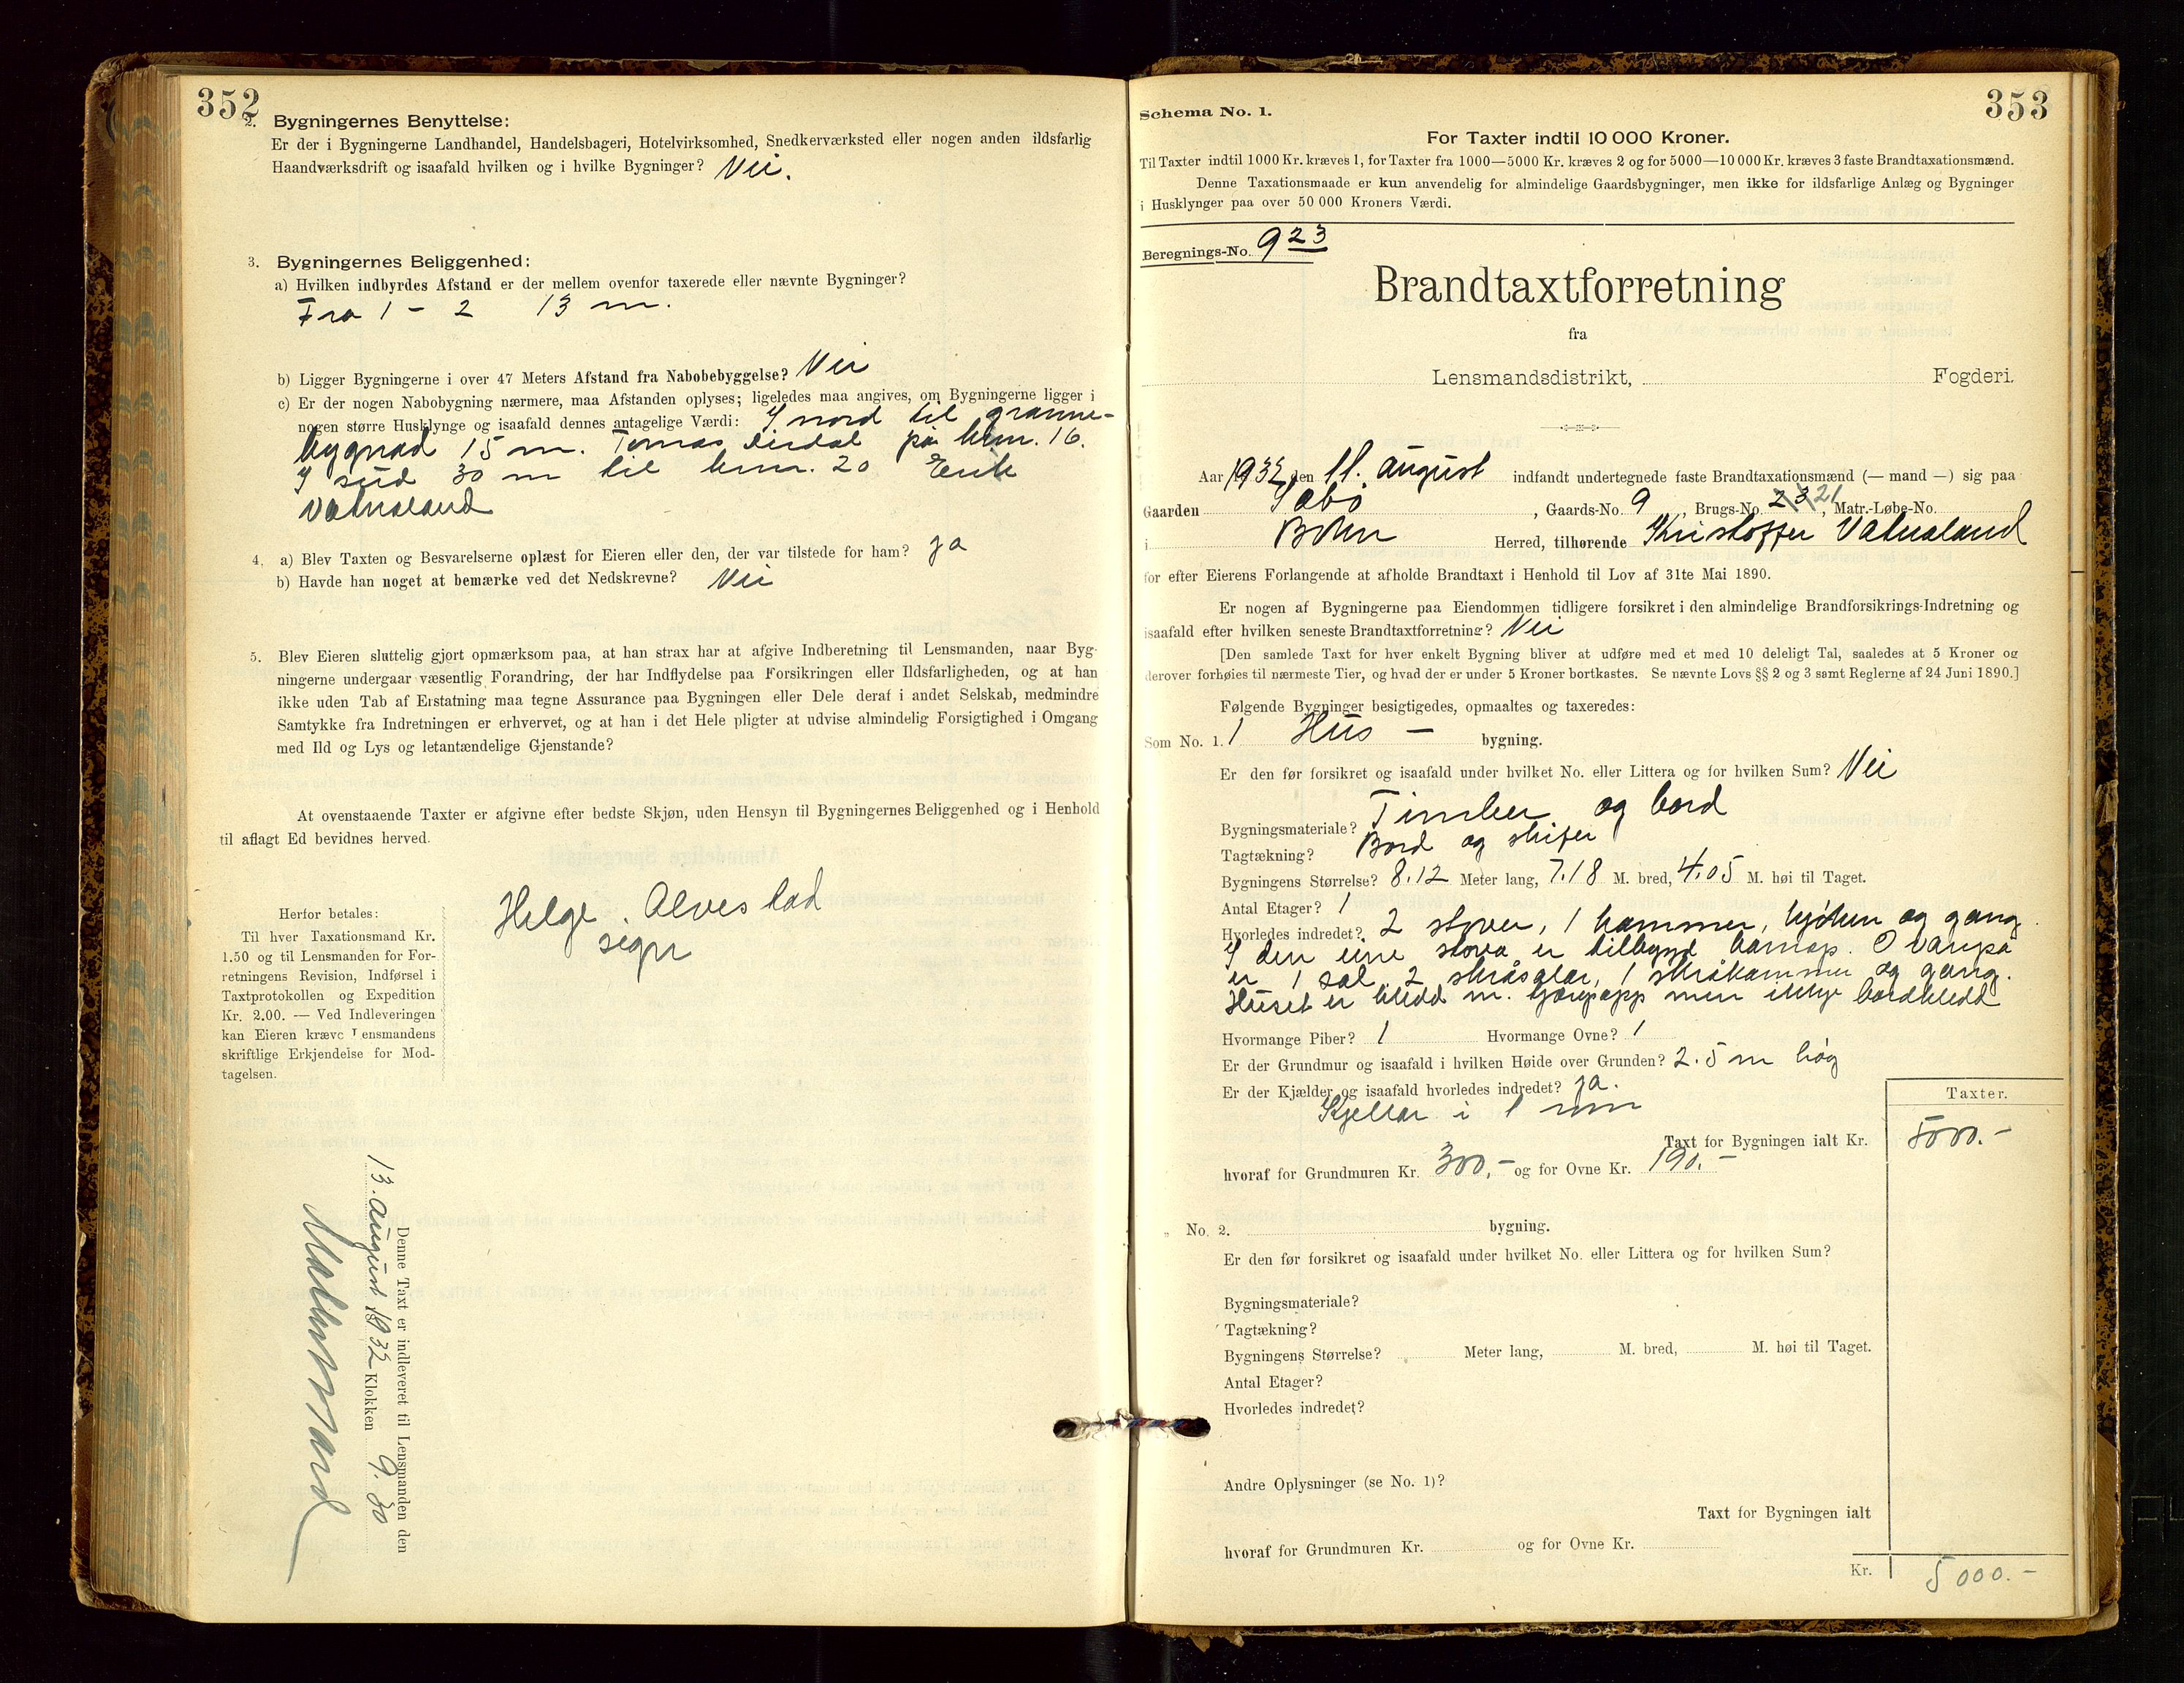 352
2. Bygningernes Benyttelse:
Er der i Bygningerne Landhandel, Handelsbageri, Hotelvirksomhed, Snedkerværksted eller nogen anden ildsfarlig
Haandværksdrift og isaafald hvilken og i hvilke Bygninger? Nei.
3. Bygningernes Beliggenhed:
a) Hvilken indbyrdes Afstand er der mellem ovenfor taxerede eller nævnte Bygninger?
Fra 1 - 2 13 m.
b) Ligger Bygningerne i over 47 Meters Afstand fra Nabobebyggelse? Nei
c) Er der nogen Nabobygning nærmere, maa Afstanden oplyses; ligeledes maa angives, om Bygningerne ligger i
nogen større Husklynge og isaafald dennes antagelige Værdi: I nord til granne-
bygnad 15 m. Tomas Dirdal på brm. 16.
I sud 30 m til brm. 20 Erik
Vatnaland
4. a) Blev Taxten og Besvarelserne oplæst for Eieren eller den, der var tilstede for ham? ja
b) Havde han noget at bemærke ved det Nedskrevne? Nei
5. Blev Eieren sluttelig gjort opmærksom paa, at han strax har at afgive Indberetning til Lensmanden, naar Byg-
ningerne undergaar væsentlig Forandring, der har Indflydelse paa Forsikringen eller Ildsfarligheden, og at han
ikke uden Tab af Erstatning maa tegne Assurance paa Bygningen eller Dele deraf i andet Selskab, medmindre
Samtykke fra Indretningen er erhvervet, og at han i det Hele pligter at udvise almindelig Forsigtighed i Omgang
med Ild og Lys og letantændelige Gjenstande?
At ovenstaaende Taxter er afgivne efter bedste Skjøn, uden Hensyn til Bygningernes Beliggenhed og i Henhold
til aflagt Ed bevidnes herved.
Helge Alvestad
sign
Herfor betales:
Til hver Taxationsmand Kr.
1.50 og til Lensmanden for For-
retningens Revision, Indførsel i
Taxtprotokollen og Expedition
Kr. 2.00. — Ved Indleveringen
kan Eieren kræve Lensmandens
skriftlige Erkjendelse for Mod-
tagelsen.
Denne Taxt er indleveret til Lensmanden den
13. august 1932 Klokken 9.30
353
Schema No. 1.
For Taxter indtil 10 000 Kroner.
Til Taxter indtil 1000 Kr. kræves 1, for Taxter fra 1000—5000 Kr. kræves 2 og for 5000—10 000 Kr. kræves 3 faste Brandtaxationsmænd.
Denne Taxationsmaade er kun anvendelig for almindelige Gaardsbygninger, men ikke for ildsfarlige Anlæg og Bygninger
i Husklynger paa over 50 000 Kroners Værdi.
Beregnings-No. 923
Brandtaxtforretning
fra
Lensmandsdistrikt, Fogderi.
Aar 1932, den 11. august indfandt undertegnede faste Brandtaxationsmænd (— mand —) sig paa
Gaarden Sæbø, Gaards-No. 9, Brugs-No. 23 21, Matr.-Løbe-No.
i Bokn Herred, tilhørende Kristoffer Vatnaland
for efter Eierens Forlangende at afholde Brandtaxt i Henhold til Lov af 31te Mai 1890.
Er nogen af Bygningerne paa Eiendommen tidligere forsikret i den almindelige Brandforsikrings-Indretning og
isaafald efter hvilken seneste Brandtaxtforretning? Nei
[Den samlede Taxt for hver enkelt Bygning bliver at udføre med et med 10 deleligt Tal, saaledes at 5 Kroner og
derover forhøies til nærmeste Tier, og hvad der er under 5 Kroner bortkastes. Se nævnte Lovs §§ 2 og 3 samt Reglerne af 24 Juni 1890.]
Følgende Bygninger besigtigedes, opmaaltes og taxeredes:
Som No. 1. 1 Hus — bygning.
Er den før forsikret og isaafald under hvilket No. eller Littera og for hvilken Sum? Nei
Bygningsmateriale? Timber og bord
Tagtækning? Bord og skifer
Bygningens Størrelse? 8.12 Meter lang, 7.18 M. bred, 4.05 M. høi til Taget.
Antal Etager? 1
Hvorledes indredet? 2 stover, 1 kammer, kjøken og gang.
I den eine stova er tilbygd Ovanpå
er 1 sal 2 1 skråkammer og gang.
Huset er kledd m. men ikkje bordkledd
Hvormange Piber? 1 Hvormange Ovne? 1
Er der Grundmur og isaafald i hvilken Høide over Grunden? 2.5 m høg
Er der Kjælder og isaafald hvorledes indredet? ja.
Kjellar i 1 rum
Taxter.
Taxt for Bygningen ialt Kr. 5000.-
hvoraf for Grundmuren Kr. 300,- og for Ovne Kr. 190.-
„ No. 2. bygning.
Er den før forsikret og isaafald under hvilket No. eller Littera og for hvilken Sum?
Bygningsmateriale?
Tagtækning?
Bygningens Størrelse? Meter lang, M. bred, M. høi til Taget.
Antal Etager?
Hvorledes indredet?
Andre Oplysninger (se No. 1)?
Taxt for Bygningen ialt
hvoraf for Grundmuren Kr. og for Ovne Kr.
Kr. 5000.-